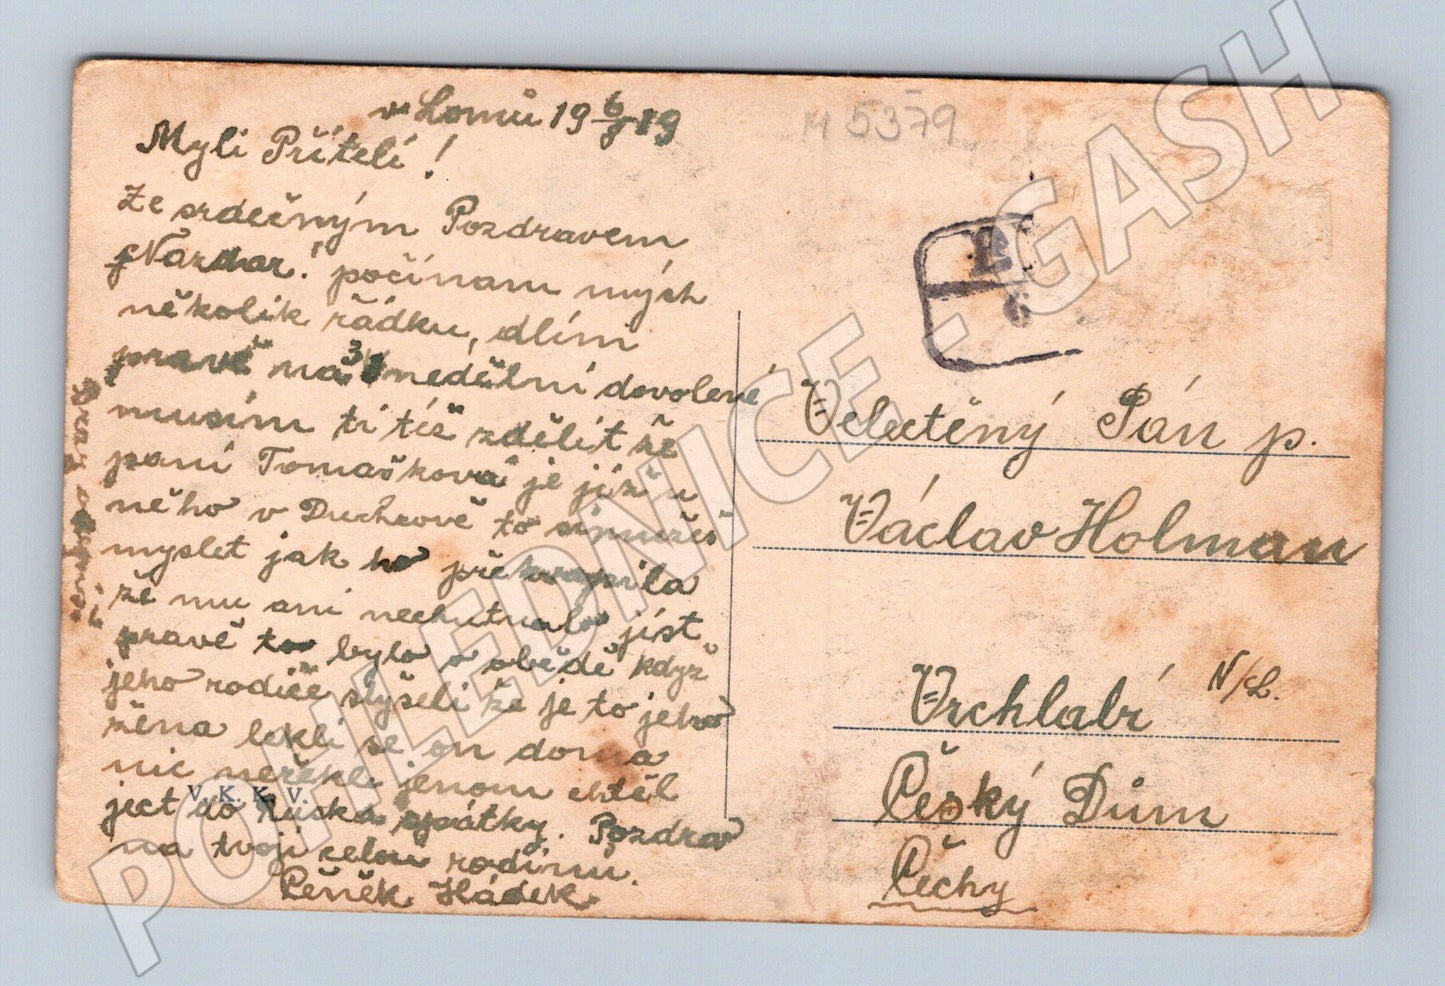 v Lomů 19 6/8 19
M 5379
Myli Příteli!
Ze srdečným Pozdravem
Nazdar! počínam mých
několik řádku, dlím
pravě na 3 nedělní dovolené
musím ti též zdělit že
paní Tomaškova je již u
něho v Duchcově to si mužeš
myslet jak ho překvapila
že mu ani nechutnalo jíst
pravě to bylo o obědě když
jeho rodiče slyšeli že je to jeho
žena lekli se on doma
nic neřekl jenom chtěl
ject do Ruska spátky. Pozdrav
na tvoji celou rodinu.
Čeněk Hádek.
V. K. K. V.
6
Veluctěný Pán p.
Václav Holman
Vrchlabí N/L.
Český Dům
Čechy
POHLEDNICE - GASH